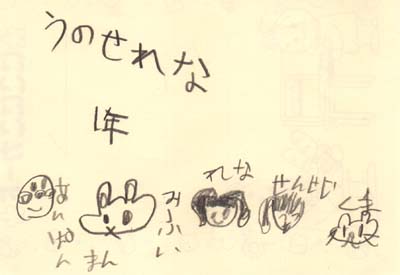 うのせれな
1年
あんぱん
まん
みふい
れな
せんせい
くま